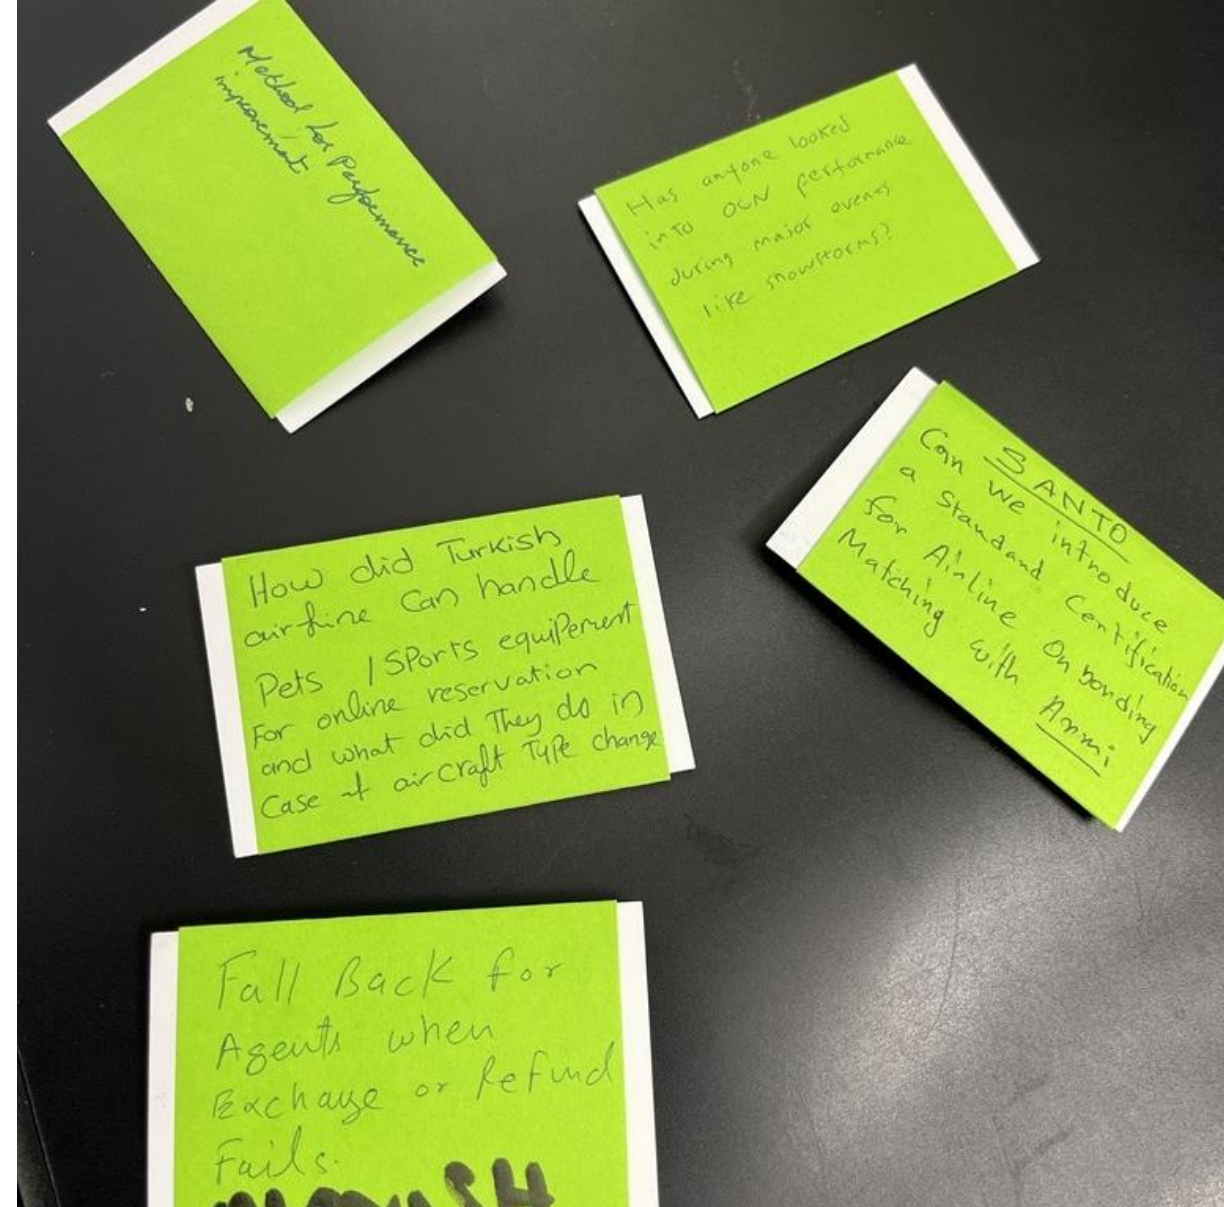 Method for Performance
improvement
Has anyone looked
into OCN performance
during major events
like snowstorms?
SANTO
Can we introduce
a standard Centification
for Airline On bonding
Matching with Ammi
How did Turkish
airline Can handle
Pets / SPorts equiPement
For online reservation
and what did They do in
Case of aircraft TyPe change
Fall Back for
Agents when
Exchange or Refund
Fails.